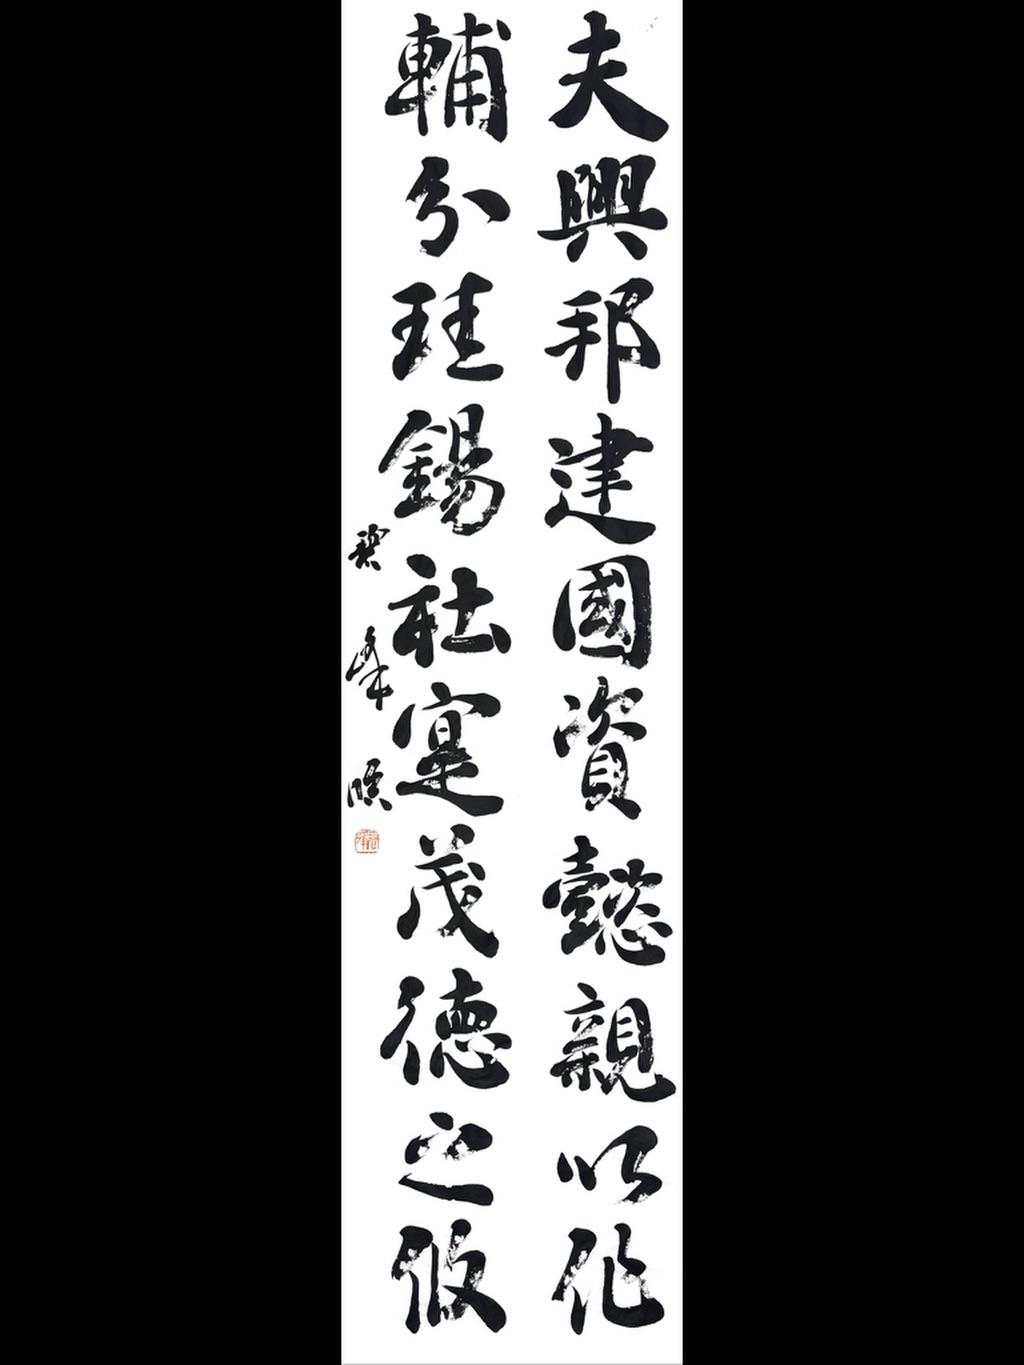 夫興邦建國資懿親以作
輔分珪錫社寔茂德之攸
碧峯